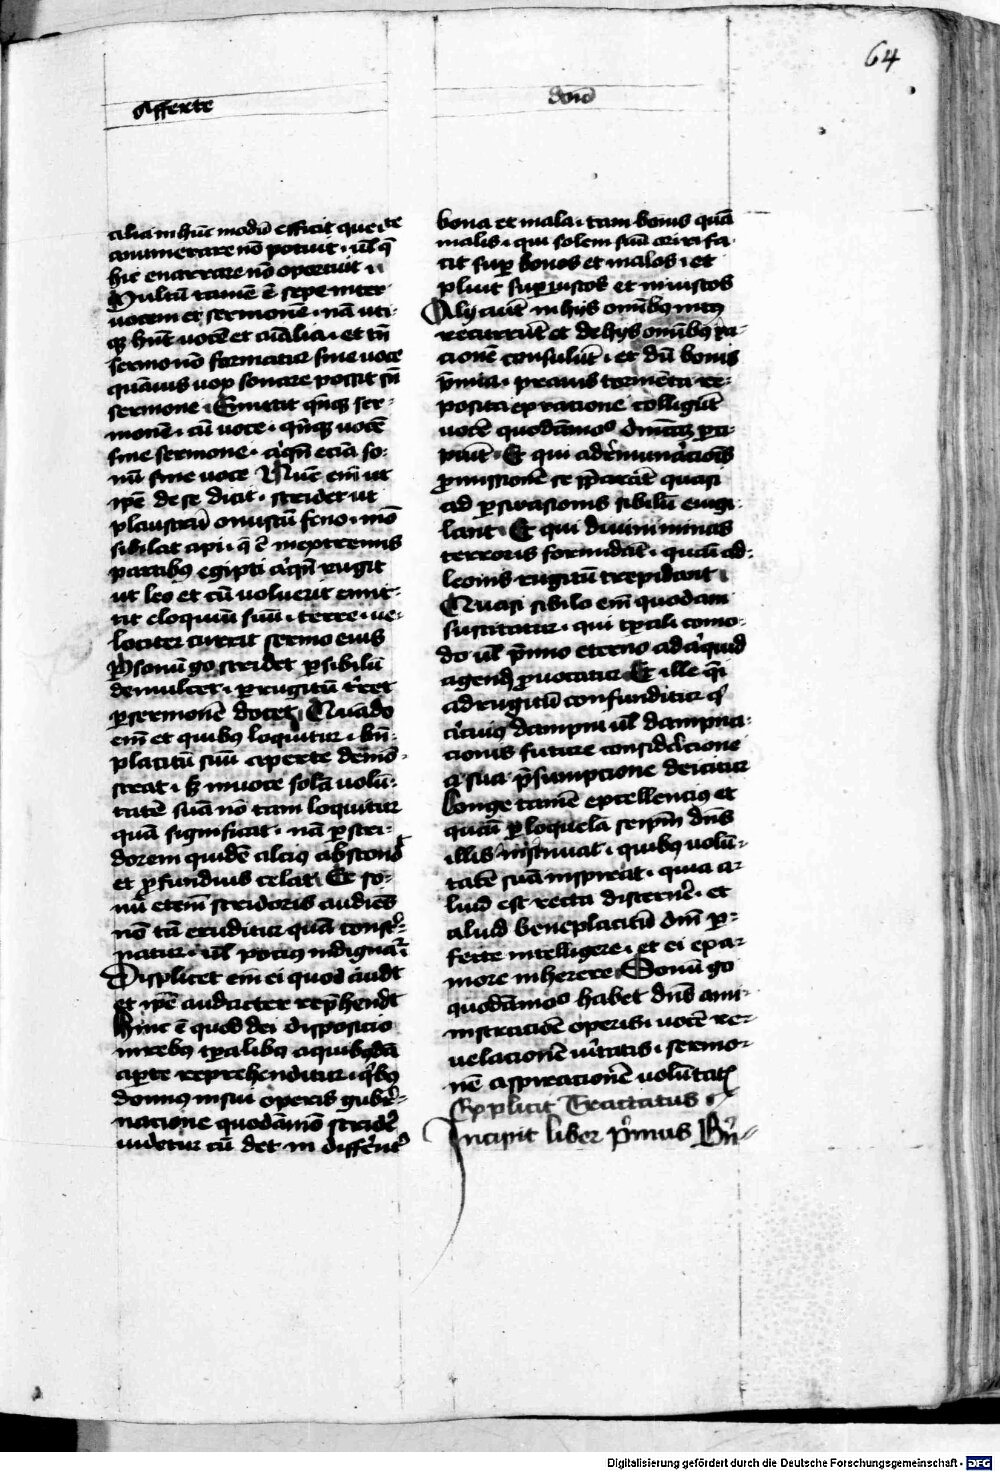 64
Afferte
dno
alia in hunc modum efficit que et
conumerare nō potuit · ul' q̄
hic enarrare nō oportuit ·
Multū tamē ē sepe inter
uocem et sermonē · nā uti-
qȝ hnt uocē et aīalia · et tn̄
sermo nō formatur sine uoce
quāuis uox sonare possit sn̄
sermone · Emittit qn̄qȝ ser-
monē · cū uoce · qn̄qȝ uocē
sine sermone · aʼqn̄ eciā so-
nū sine uoce Nunc em̄ ut
ipē de se dicit · stridet ut
plaustrū onustū feno · mō
sibilat api · q̄ ē in extremis
partibȝ egipti aʼqn̄ rugit
ut leo et cū uoluerit emit-
tit eloquiū suū · terre · ue-
lociter currit sermo eius
Per sonū go stridet p sibilū
demulcet · p rugitū t'ret
p sermonē docet · Quādo
em̄ et quibȝ loquitur · bn̄-
placitū suū aperte demō-
strat · sȝ in uoce solā uolū-
tatē suā nō tam loquitur
quā significat · nā p stri-
dorem quidē alcius abscond'
et pfundius celat · Et so-
nū etem̄ stridoris audiēs
nō tā eruditur quā const'-
natur · ul' pocius indignat'
Displicet em̄ ei quod audit
et ipē audacter rep̄hendit
Hinc ē quod dei disposicio
in rebȝ tp̄alibȝ a quibȝdā
apte reprehenditur · qʼbȝ
domnus in sui operis gub'-
nacione quodāmō strid'e
uidetur cū det indiffer̄nt'
bona et mala · tam bonis quā
malis · qui solem suū oriri fa-
cit sup bonos et malos · et
pluit sup iustos et iniustos
Alij aūt in hijs omībȝ
et de hijs omībȝ ra-
cionē consulūt · et dū bonis
p̄mia · prauis tormēta re-
posita ex ratione colligūt
uocē quodāmō dm̄ca p̄ci-
piūt · Et qui ad
promissionē se quasi
ad p̄suasionis sibilū euigi-
lant · Et qui diuini minas
terroris formidāt · quasi ad
leonis rugitū trepidant
Quasi sibilo em̄ quodam
suscitatur · qui tp̄ali como-
do ul' p̄mio eterno ad aʼquid
agend' puocatur Et ille q̄si
ad rugitū confunditur qʼ
dampni ul' dampna-
cionis future consid'acione
a sua p̄sumptione deicitur
Longe tamē excellencius et
quasi p loquelā seipm̄ dn̄s
illis insinuat · quibȝ uolū-
tatē suā inspirat · quia a-
liud est recta discern'e · et
aliud beneplacitū dn̄i p-
fecte intelligere · et ei ex a-
more inherere Sonū go
quodāmō habet dn̄s ami-
nistracionē operis · uocē re-
uelacionē u'itatis · sermo-
nē aspiracionē uolūtatis
Explicit Tractatus
Incipit liber p'mus Bn̄-
Digitalisierung gefördert durch die Deutsche Forschungsgemeinschaft - DFG